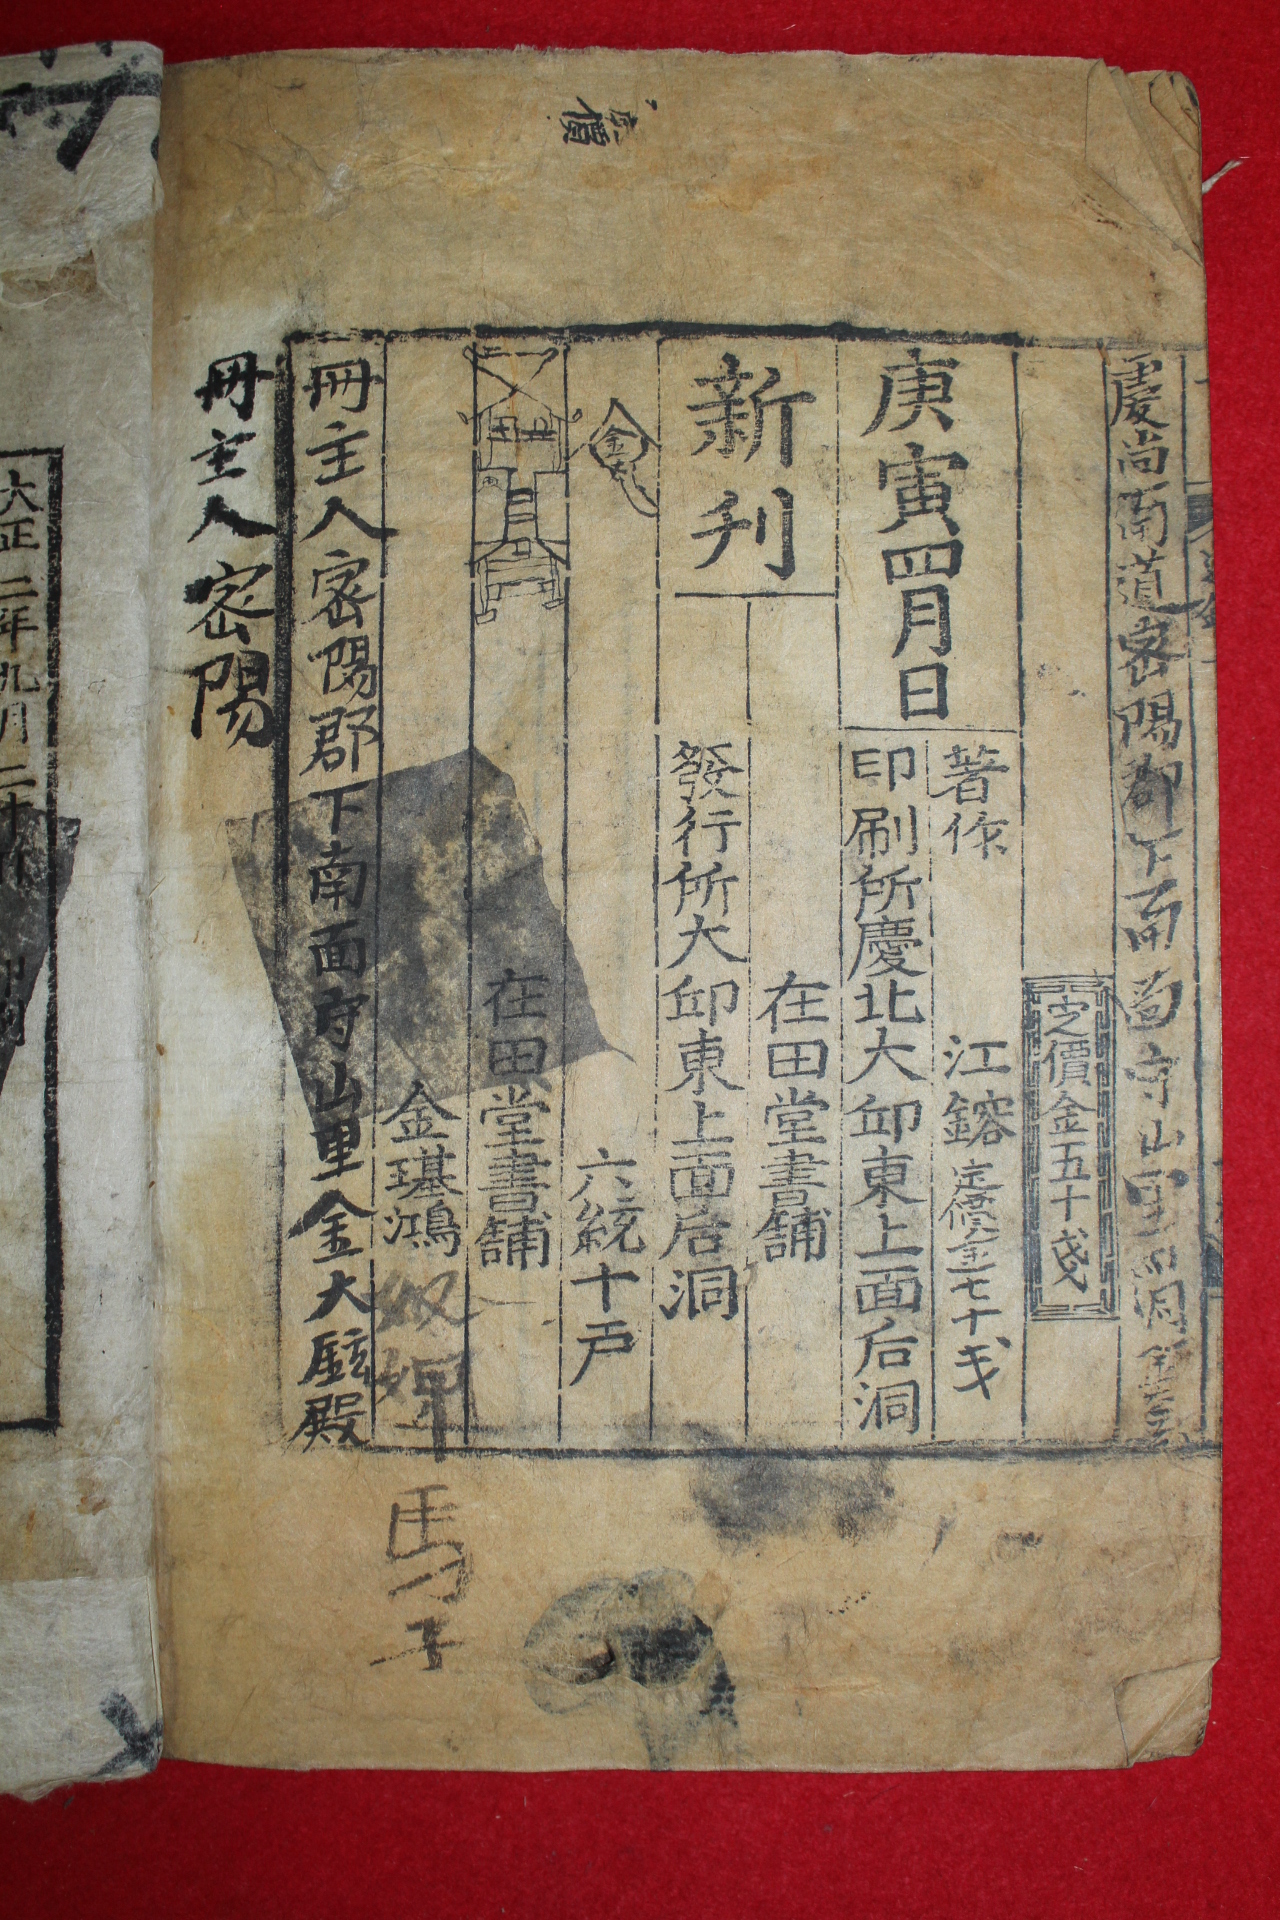 價
慶尚南道密陽郡下南面守山里
定價金五十戔
庚寅四月日
著作 江鎔 定價金七十戔
印刷所慶北大邱東上面后洞
新刊
在田堂書舖
發行所大邱東上面后洞
金
六統十戶
在田堂書舖
金璂鴻
奴婢馬子
冊主人密陽郡下南面守山里金大鉉殿
冊主人密陽
大正二年九月二十